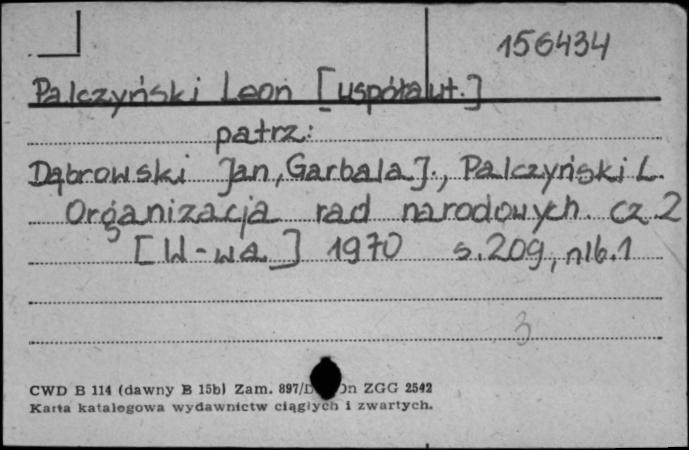 156434
Palczyński Leon [współaut.]
patrz:
Dąbrowski Jan, Garbala J., Palczyński L.
Organizacja rad narodowych. cz. 2
[W-wa] 1970 s. 209, nlb. 1
3
CWD B 114 (dawny B 15b) Zam. 897/ ZGG 2542
Karta katalogowa wydawnictw ciągłych i zwartych.